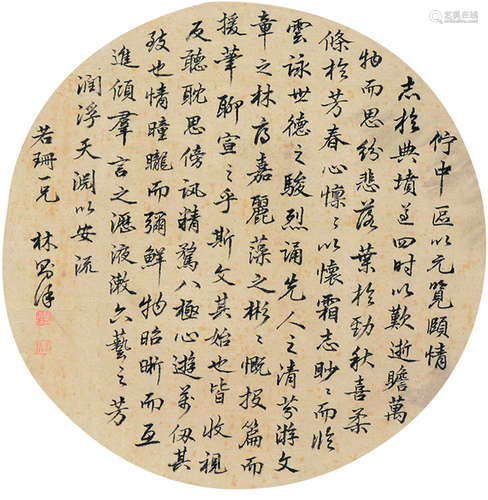 佇中區以元覽頤情
志於典墳遵四時以歎逝瞻萬
物而思紛悲落葉於勁秋喜柔
條於芳春心懍〻以懷霜志眇〻而臨
雲詠世德之駿烈誦先人之清芬游文
章之林府嘉麗藻之彬〻慨投篇而
援筆聊宣之乎斯文其始也皆收視
反聽耽思傍訊精騖八極心遊萬仞其
致也情曈曨而彌鮮物昭晰而互
進傾羣言之瀝液漱六藝之芳
潤浮天淵以安流
若珊一兄 林